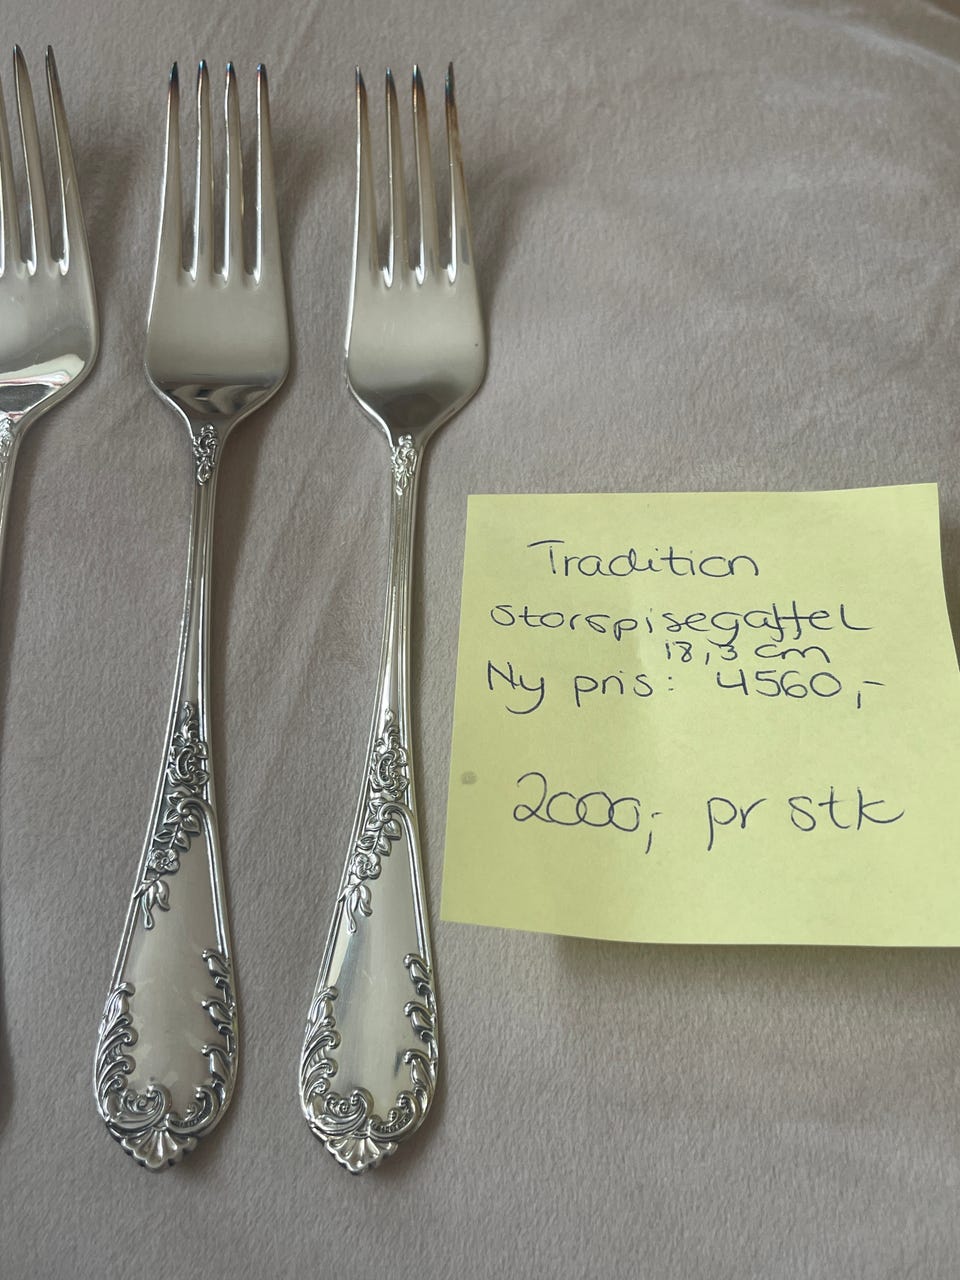 Tradition
storspisegaffel
18,3 cm
Ny pris: 4560,-
2000,- pr stk